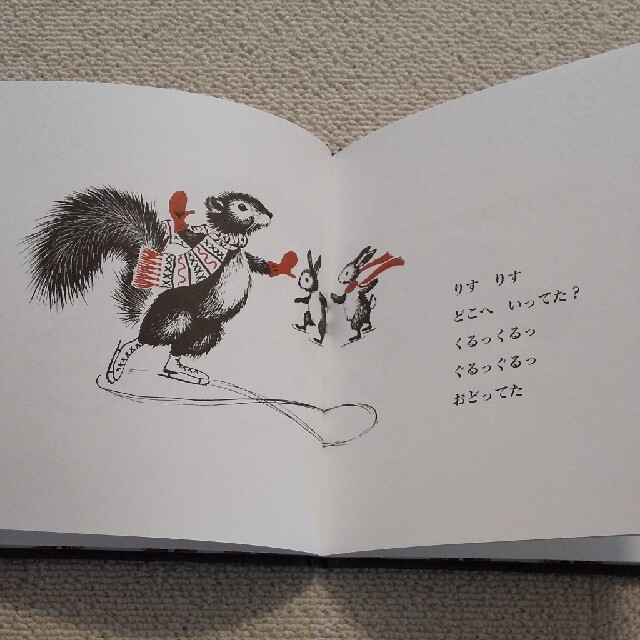 りす　りす
どこへ　いってた？
くるっくるっ
ぐるっぐるっ
おどってた